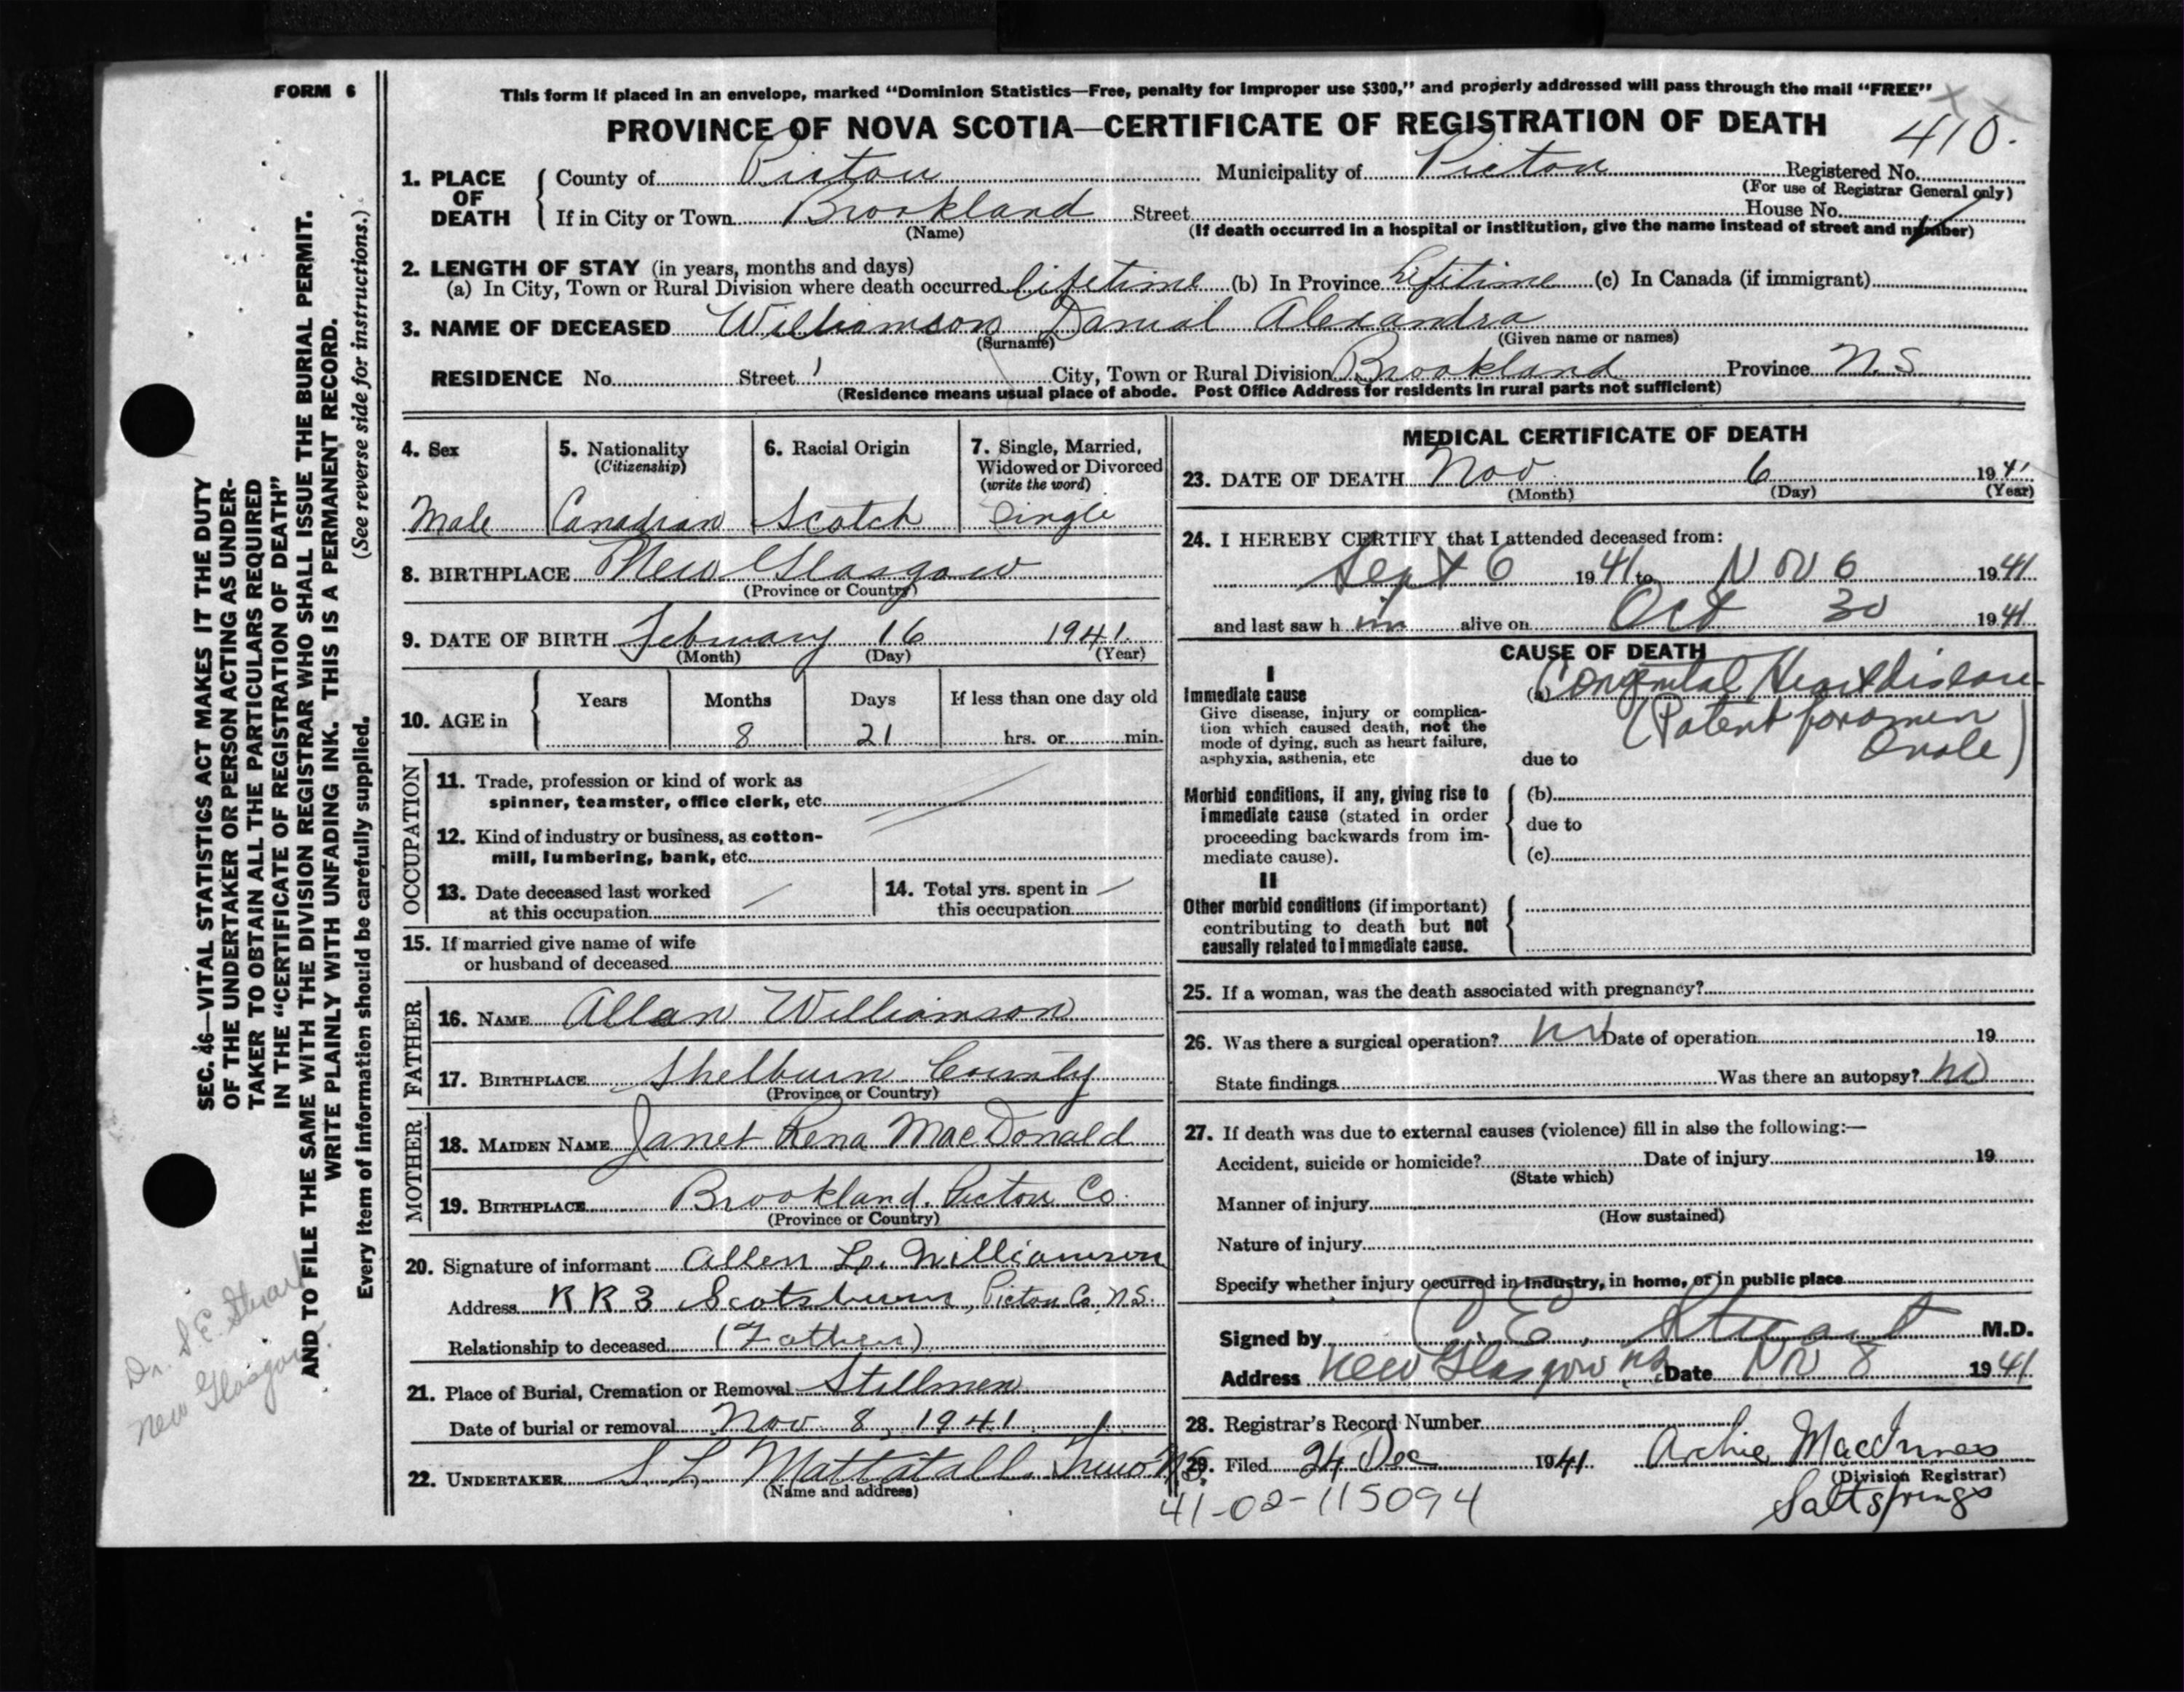 FORM 6
This form if placed in an envelope, marked "Dominion Statistics—Free, penalty for improper use $300," and properly addressed will pass through the mail "FREE"
PROVINCE OF NOVA SCOTIA—CERTIFICATE OF REGISTRATION OF DEATH
410.
1. PLACE OF DEATH County of Pictou Municipality of Pictou Registered No.
(For use of Registrar General only)
If in City or Town Brookland Street House No.
(Name) (If death occurred in a hospital or institution, give the name instead of street and number)
2. LENGTH OF STAY (in years, months and days)
(a) In City, Town or Rural Division where death occurred lifetime (b) In Province Lifetime (c) In Canada (if immigrant)
3. NAME OF DECEASED Williamson Danial Alexandra
(Surname) (Given name or names)
RESIDENCE No. Street City, Town or Rural Division Brookland Province N.S
(Residence means usual place of abode. Post Office Address for residents in rural parts not sufficient)
4. Sex 5. Nationality 6. Racial Origin 7. Single, Married,
(Citizenship) Widowed or Divorced
(write the word)
Male Canadian Scotch Single
8. BIRTHPLACE New Glasgow
(Province or Country)
9. DATE OF BIRTH February 16 1941.
(Month) (Day) (Year)
10. AGE in Years Months Days If less than one day old
8 21 hrs. or min.
OCCUPATION
11. Trade, profession or kind of work as
spinner, teamster, office clerk, etc.
12. Kind of industry or business, as cotton-
mill, lumbering, bank, etc.
13. Date deceased last worked 14. Total yrs. spent in
at this occupation this occupation
15. If married give name of wife
or husband of deceased
FATHER
16. NAME Allan Williamson
17. BIRTHPLACE Shelburn County
(Province or Country)
MOTHER
18. MAIDEN NAME Janet Rena MacDonald
19. BIRTHPLACE Brookland. Pictou Co.
(Province or Country)
20. Signature of informant Allen Williamson
Address R R 3 Scotsburn, Pictou Co. N.S.
Relationship to deceased (Father)
21. Place of Burial, Cremation or Removal Stillmen
Date of burial or removal Nov 8, 1941
22. UNDERTAKER S L Mattatall. Truro NS.
(Name and address)
MEDICAL CERTIFICATE OF DEATH
23. DATE OF DEATH Nov. 6 1941
(Month) (Day) (Year)
24. I HEREBY CERTIFY that I attended deceased from:
Sept 6 1941 to Nov 6 1941
and last saw him alive on Oct 30 1941
CAUSE OF DEATH
I
Immediate cause (a) Congenital Heart disease
Give disease, injury or complica-
tion which caused death, not the
mode of dying, such as heart failure,
asphyxia, asthenia, etc
(Patent foramen
Ovale)
due to
Morbid conditions, if any, giving rise to
immediate cause (stated in order
proceeding backwards from im-
mediate cause).
(b)
due to
(c)
II
Other morbid conditions (if important)
contributing to death but not
causally related to immediate cause.
25. If a woman, was the death associated with pregnancy?
26. Was there a surgical operation? no Date of operation 19
State findings Was there an autopsy? no
27. If death was due to external causes (violence) fill in also the following:—
Accident, suicide or homicide? Date of injury 19
(State which)
Manner of injury
(How sustained)
Nature of injury
Specify whether injury occurred in industry, in home, or in public place
Signed by E. Stuart M.D.
Address New Glasgow ns. Date Nov 8 1941
28. Registrar's Record Number
29. Filed 24 Dec 1941. Archie MacInnes
(Division Registrar)
Saltsprings
41-02-115094
SEC. 46—VITAL STATISTICS ACT MAKES IT THE DUTY
OF THE UNDERTAKER OR PERSON ACTING AS UNDER-
TAKER TO OBTAIN ALL THE PARTICULARS REQUIRED
IN THE "CERTIFICATE OF REGISTRATION OF DEATH"
AND TO FILE THE SAME WITH THE DIVISION REGISTRAR WHO SHALL ISSUE THE BURIAL PERMIT.
WRITE PLAINLY WITH UNFADING INK. THIS IS A PERMANENT RECORD.
Every item of information should be carefully supplied. (See reverse side for instructions.)
Dr. S E. Stuart
New Glasgow.